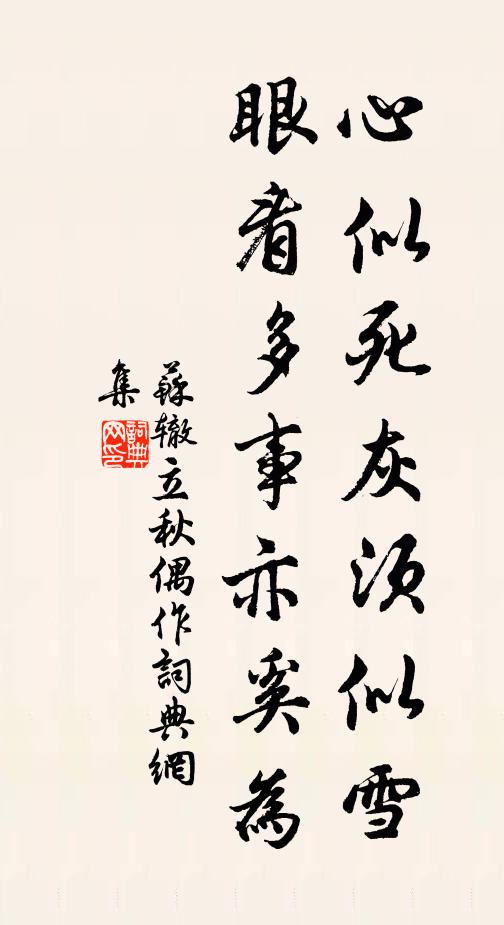 心似死灰须似雪
眼看多事亦奚為
蘇轍立秋偶作詞典網
集
詞典
网印